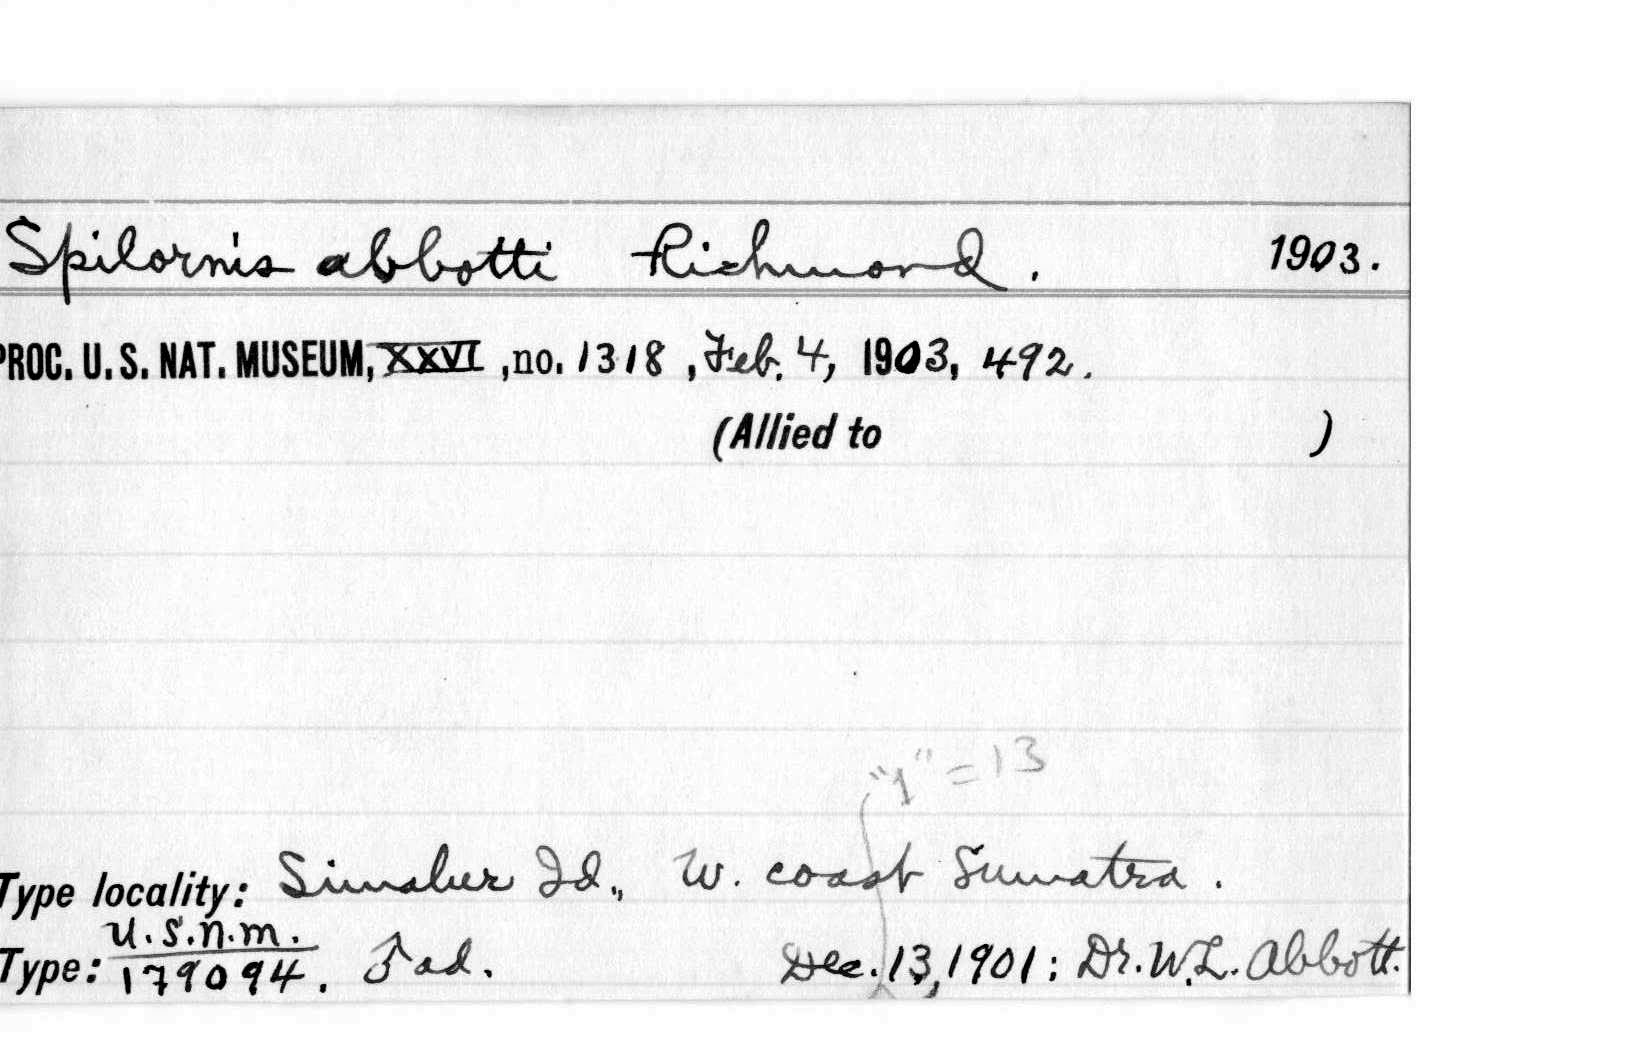 Spilornis abbotti Richmond. 1903.
PROC. U. S. NAT. MUSEUM, XXVI, no. 1318, Feb. 4, 1903, 492.
(Allied to )
"1" = 13
Type locality: Simalur Id., W. coast Sumatra.
U.S.N.M.
Type: 179094. ♂ ad. Dec. 13, 1901: Dr. W. L. Abbott.